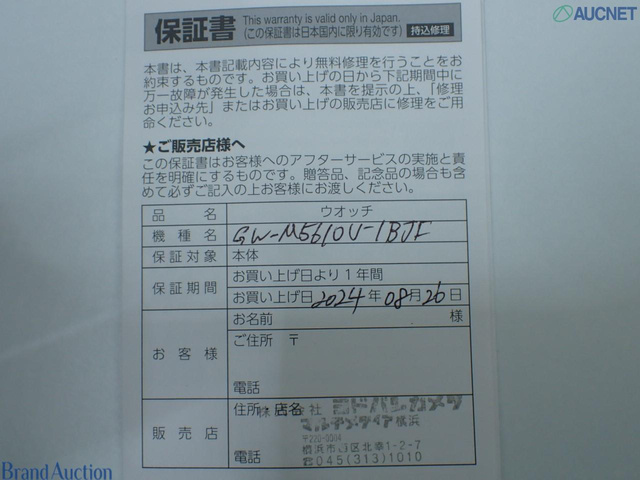 AUCNET
保証書
This warranty is valid only in Japan.
(この保証書は日本国内に限り有効です)
持込修理
本書は、本書記載内容により無料修理を行うことをお
約束するものです。お買い上げの日から下記期間中に
万一故障が発生した場合は、本書を提示の上、「修理
お申込み先」またはお買い上げの販売店に修理をご用
命ください。
★ご販売店様へ
この保証書はお客様へのアフターサービスの実施と責
任を明確にするものです。贈答品、記念品の場合も含
めて必ずご記入の上お客様にお渡しください。
品名 ウオッチ
機種名 GW-M5610U-1BJF
保証対象 本体
保証期間 お買い上げ日より1年間
お買い上げ日 2024年08月26日
お客様 お名前 様
ご住所 〒
電話
販売店 住所・店名
株式会社 ヨドバシカメラ
マルチメディア横浜
〒220-0004
横浜市西区北幸1-2-7
電話 ☎045(313)1010
Brand Auction